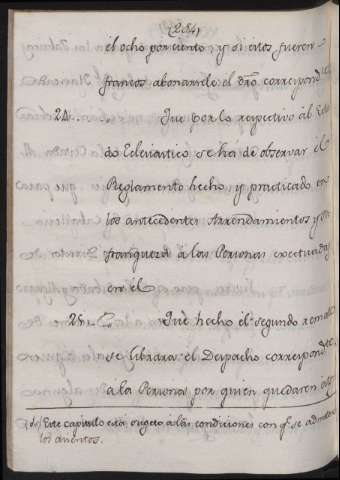 (284)
el ocho por ciento, y si estos fueren
francos abonarsele el dro. correspond.te
24.. Que por lo respectivo al Esta
do Eclesiastico se ha de observar el
Reglamento hecho, y practicado en
los antecedentes Arrendamientos y
franqueza à las Personas exectuadas
en èl
25.. Que hecho el segundo remate
se librara el Despacho correspond.te
a la Persona por quien quedaren
Este capitulo està sugeto à las condiciones con q.e se admiten
los aumentos.